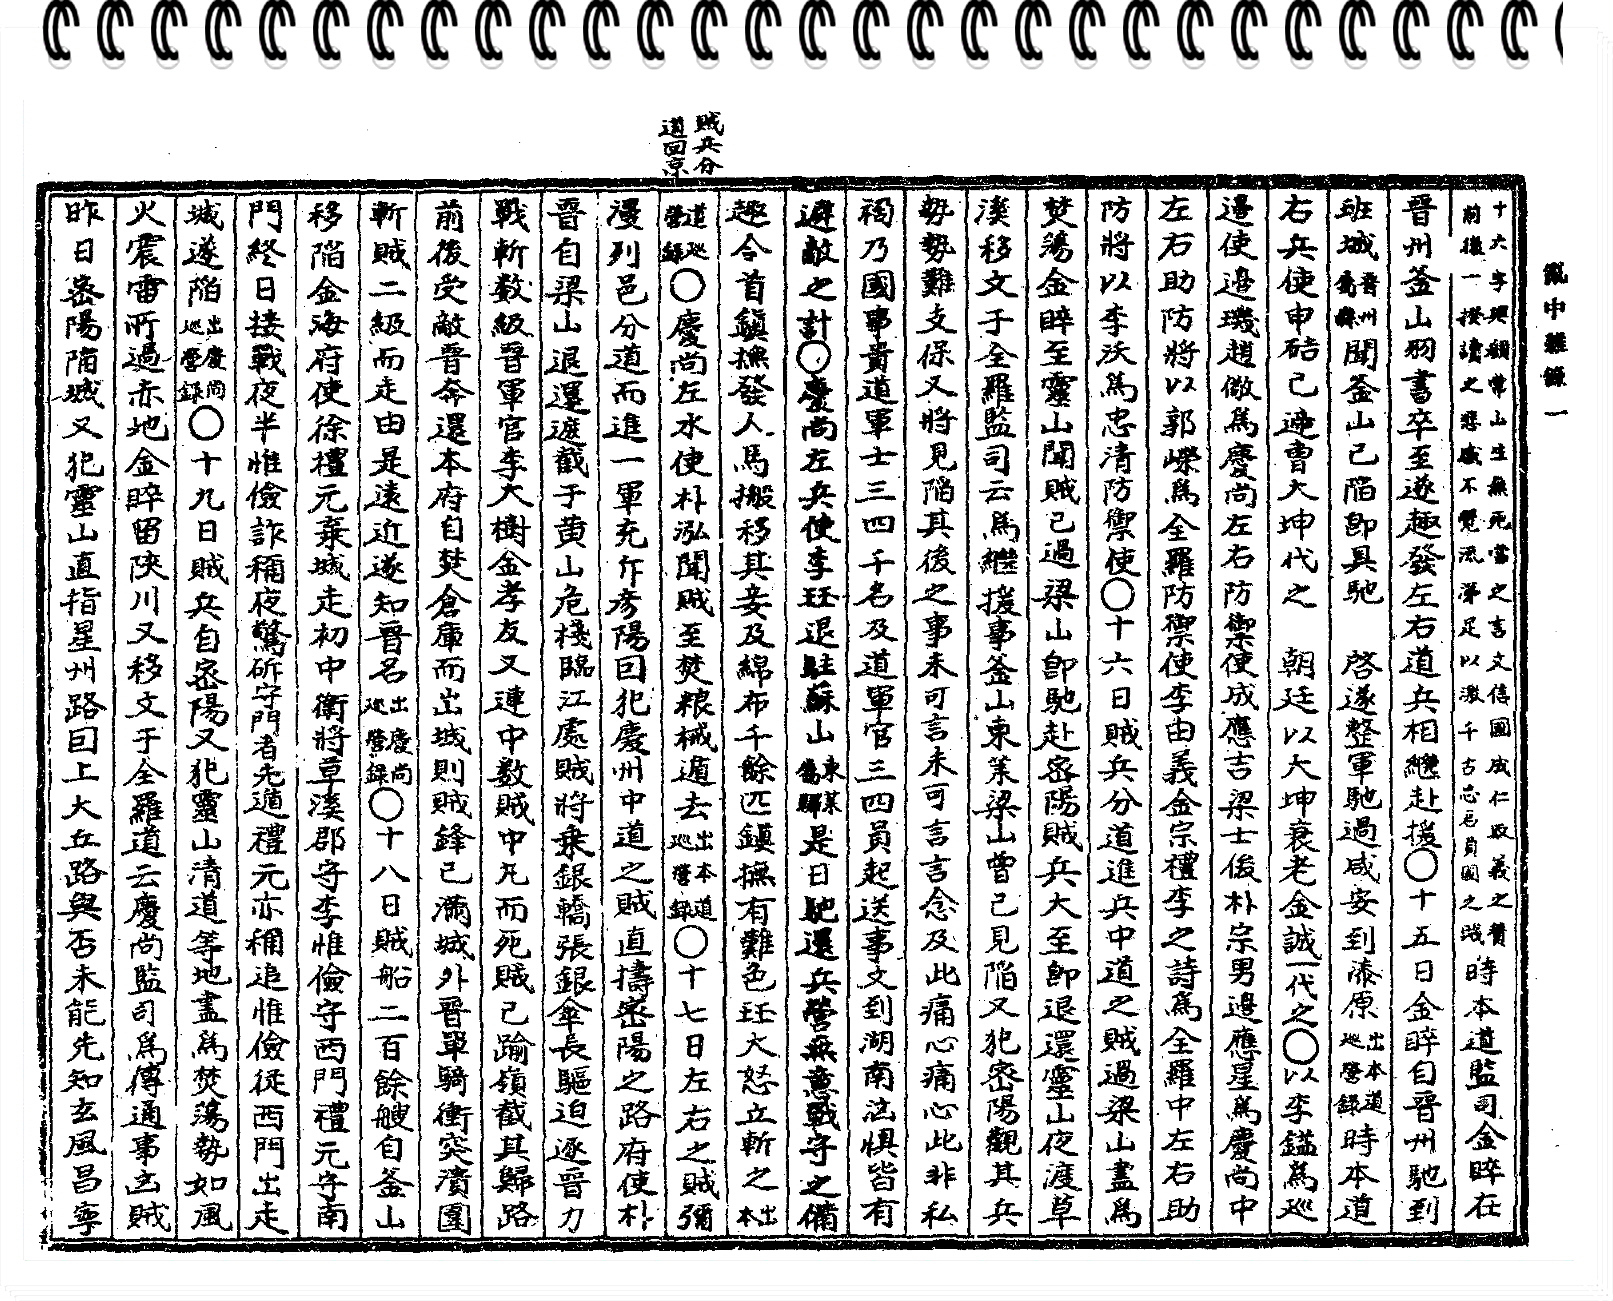 亂中雜錄 一
十六字與顏常山生無死當之言文信國成仁取義之贊
前後一揆讀之悲感不覺流涕足以激千古忠臣貞國之
時本道監司金睟在
晋州釜山羽書卒至遂趣發左右道兵相繼赴援○十五日金睟自晋州馳到
班城晋州屬縣聞釜山已陷卽具馳 啓遂整軍馳過咸安到漆原出本道巡營錄時本道
右兵使申硈已遆曺大坤代之 朝廷以大坤衰老金誠一代之○以李鎰爲巡
邊使邊璣趙儆爲慶尚左右防禦使成應吉梁士俊朴宗男邊應星爲慶尚中
左右助防將以郭嶸爲全羅防禦使李由義金宗禮李之詩爲全羅中左右助
防將以李沃爲忠清防禦使○十六日賊兵分道進兵中道之賊過梁山盡爲
焚蕩金睟至靈山聞賊已過梁山卽馳赴密陽賊兵大至卽退還靈山夜渡草
溪移文于全羅監司云爲繼援事釜山東萊梁山曾已見陷又犯密陽觀其兵
勢勢難支保又將見陷其後之事未可言未可言言念及此痛心痛心此非私
禍乃國事貴道軍士三四千名及道軍官三四員起送事文到湖南洶惧皆有
避敵之計○慶尚左兵使李珏退駐蘇山東萊屬縣是日馳還兵營無意戰守之備
趣合首鎭撫發人馬搬移其妾及綿布千餘匹鎭撫有難色珏大怒立斬之出本
賊兵分
道回京
道巡營錄○慶尚左水使朴泓聞賊至焚粮械遁去出本道巡營錄○十七日左右之賊彌
漫列邑分道而進一軍充斥彦陽回犯慶州中道之賊直擣密陽之路府使朴
晋自梁山退還遮截于黄山危棧臨江處賊將乗銀轎張銀傘長驅迫逐晋力
戰斬数級晋軍官李大樹金孝友又連中数賊中丸而死賊已踰嶺截其歸路
前後受敵晋奔還本府自焚倉庫而出城則賊鋒已滿城外晋單騎衝突潰圍
斬賊二級而走由是遠近遂知晋名出慶尚巡營錄○十八日賊船二百餘艘自釜山
移陷金海府使徐禮元棄城走初中衛將草溪郡守李惟儉守西門禮元守南
門終日接戰夜半惟儉詐稱夜驚斫守門者先遁禮元亦稱追惟儉従西門出走
城遂陷出慶尚巡營錄○十九日賊兵自密陽又犯靈山清道等地盡爲焚蕩勢如風
火震雷所過赤地金睟留陜川又移文于全羅道云慶尚監司爲傳通事玄賊
昨日密陽陷城又犯靈山直指星州路回上大丘路與否未能先知玄風昌寧